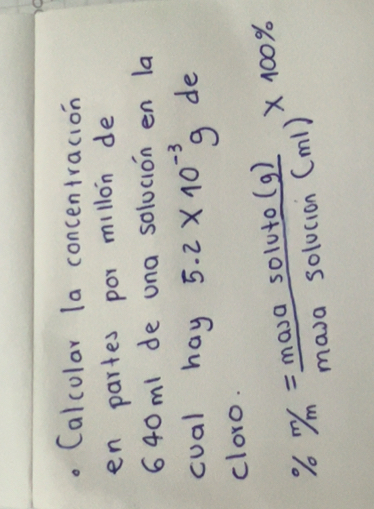 • Calcular la concentración
en partes por millón de
640 ml de una solución en la
cual hay 5.2 x 10⁻³ g de
cloro.
% m/m = masa soluto (g) / masa solución (ml) x 100%